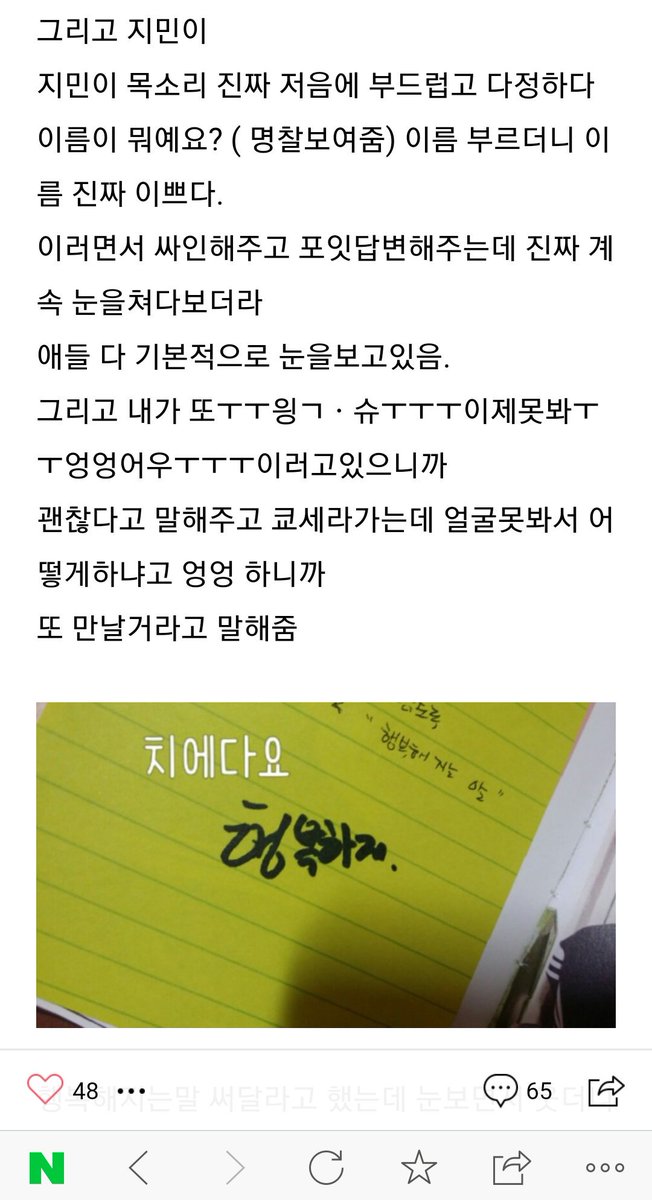 그리고 지민이
지민이 목소리 진짜 저음에 부드럽고 다정하다
이름이 뭐예요? ( 명찰보여줌) 이름 부르더니 이
름 진짜 이쁘다.
이러면서 싸인해주고 포잇답변해주는데 진짜 계
속 눈을쳐다보더라
애들 다 기본적으로 눈을보고있음.
그리고 내가 또ㅜㅜ읭ㄱ · 슈ㅜㅜㅜ이제못봐ㅜ
ㅜ엉엉어우ㅜㅜㅜ이러고있으니까
괜찮다고 말해주고 쿄세라가는데 얼굴못봐서 어
떻게하냐고 엉엉 하니까
또 만날거라고 말해줌
"행복해 지는 말"
치에다요
행복하자.
48 •••
65
행복해지는말 써달라고 했는데 눈보면서
N